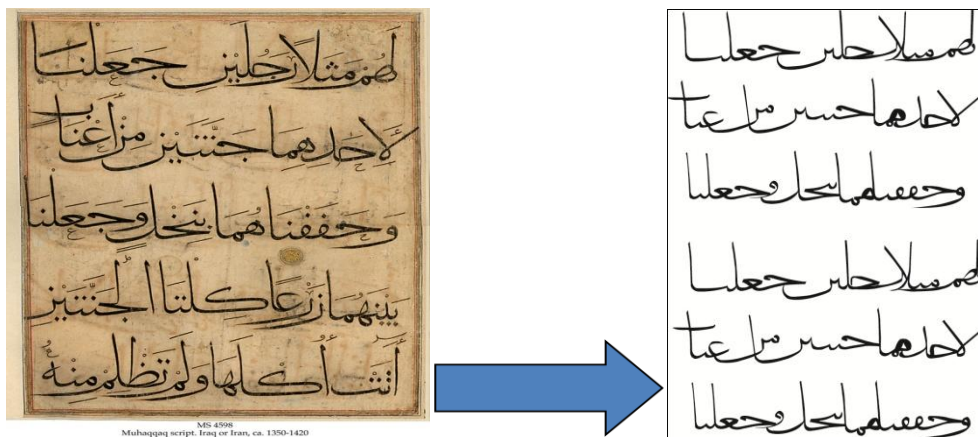 لهم مثلا رجلين جعلنا
لأحدهما جنتين من أعناب
وحففناهما بنخل وجعلنا
بينهما زرعا كلتا الجنتين
أتت أكلها ولم تظلم منه
MS 4598
Muhaqqaq script. Iraq or Iran, ca. 1350-1420
لهم مثلا رجلين جعلنا
لاحدهما جنتين من عنا
وحففناهما بنخل وجعلنا
لهم مثلا رجلين جعلنا
لاحدهما جنتين من عنا
وحففناهما بنخل وجعلنا